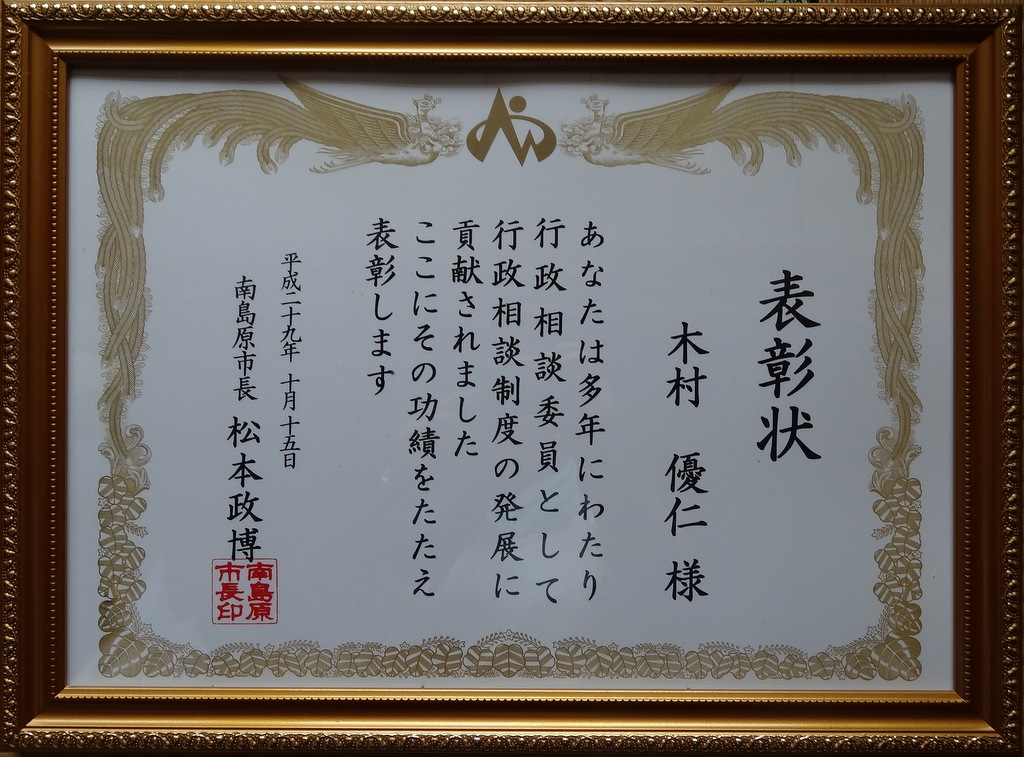 表彰状
木村 優仁 様
あなたは多年にわたり
行政相談委員として
行政相談制度の発展に
貢献されました
ここにその功績をたたえ
表彰します
平成二十九年 十月十五日
南島原市長 松本政博
南島原
市長印